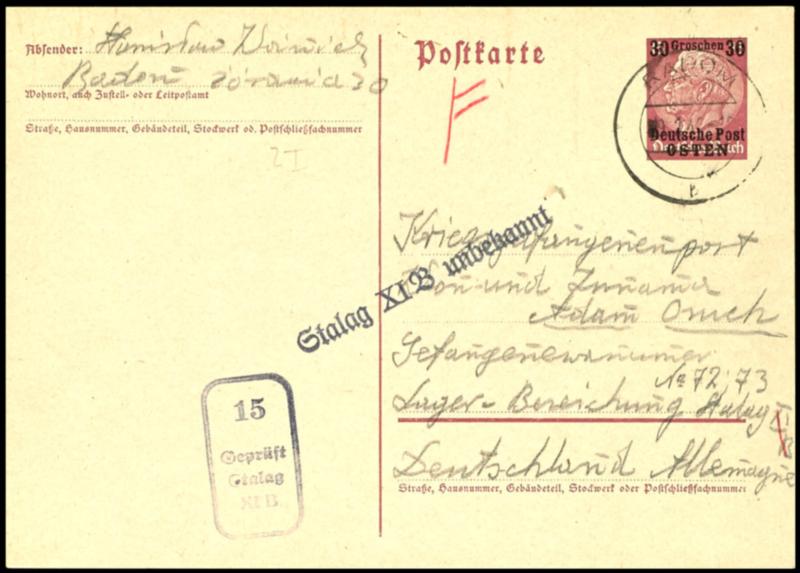 Absender: Stanisław
Wohnort, auch Zustell- oder Leitpostamt
Straße, Hausnummer, Gebäudeteil, Stockwerk od. Postschließfachnummer
2I
Postkarte
30 Groschen 30
RADOM
Deutsche Post
OSTEN
Deutsches Reich
b
Stalag XI B unbekannt
15
Geprüft
Stalag
XI B
Kriegsgefangenenpost
Vor und Zunama
Adam
Gefangenennummer
No 72,73
Lager-Bereichung Stalag XI B
Deutschland Allemagne
Straße, Hausnummer, Gebäudeteil, Stockwerk oder Postschließfachnummer